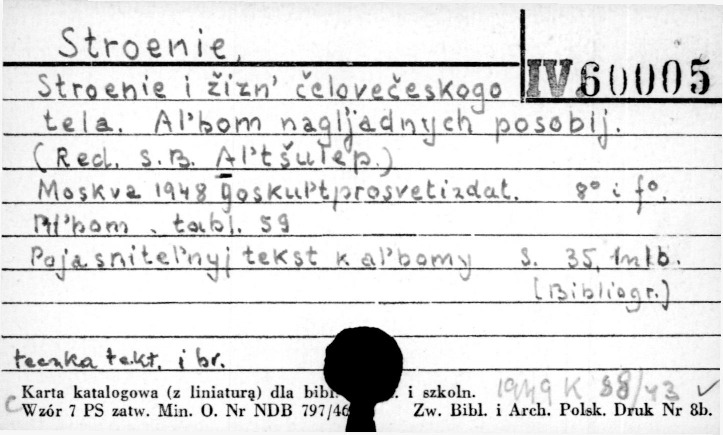 Stroenie,
IV 60005
Stroenie i žizn' čelovečeskogo
tela. Al'bom nagljadnych posobij.
(Red. S.B. Al'tšulep.)
Moskva 1948 goskul't,prosvetizdat. 8° i f°.
Al'bom, tabl. 59
Pojasnitel'nyj tekst k al'bomy S. 35, 1nlb.
[Bibliogr.]
teczka tekt. i br.
Karta katalogowa (z liniaturą) dla i szkoln.
1949 K 88/43 ✓
Wzór 7 PS zatw. Min. O. Nr NDB 797/46 Zw. Bibl. i Arch. Polsk. Druk Nr 8b.